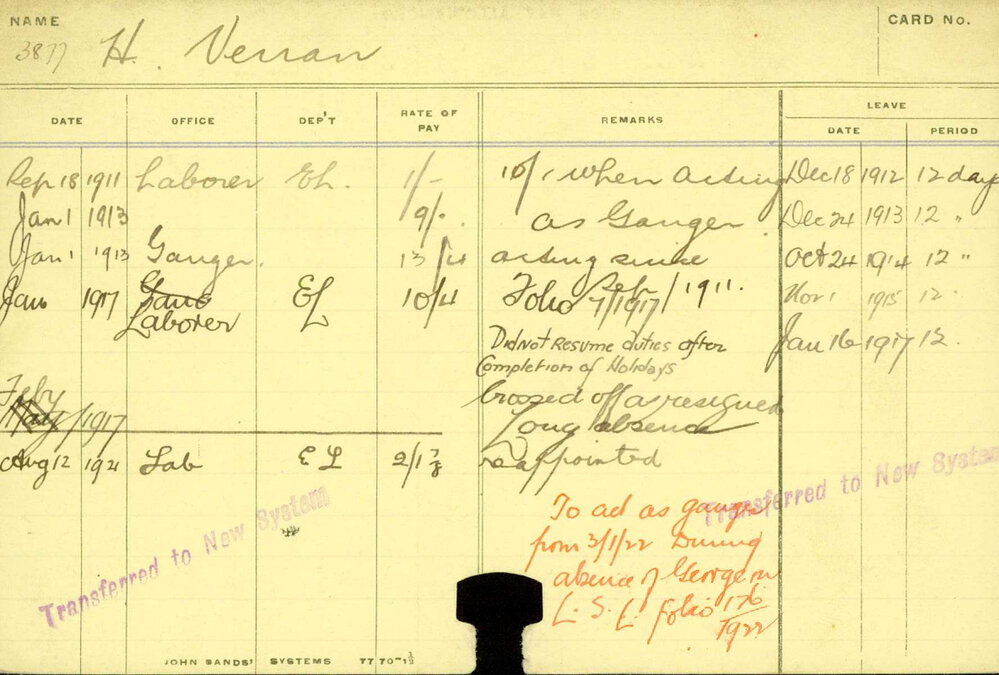 NAME
CARD No.
3877 H. Verran
LEAVE
DATE OFFICE DEP'T RATE OF PAY REMARKS DATE PERIOD
Sep 18 1911 Laborer EL. 10/1 when acting Dec 18 1912 12 days
Jan 1 1913 9/- as Ganger Dec 24 1913 12 "
Jan 1 1913 Ganger. acting since Oct 24 1914 12 "
Jan 1917 Gang EL 10/4 Sep/1911. Nov 1 1915 12.
Laborer Folio 7/1917
Did not Resume duties after Jan 16 1917 12.
Completion of Holidays
Feby crossed off as resigned
May/1917 long absence
Aug 12 1921 Lab EL 2/1 7/8 reappointed
Transferred to New System
To act as ganger
from 3/1/22 During
absence of George on
L. S. L. folio 176/1922
Transferred to New System
JOHN SANDS' SYSTEMS 7770-1½